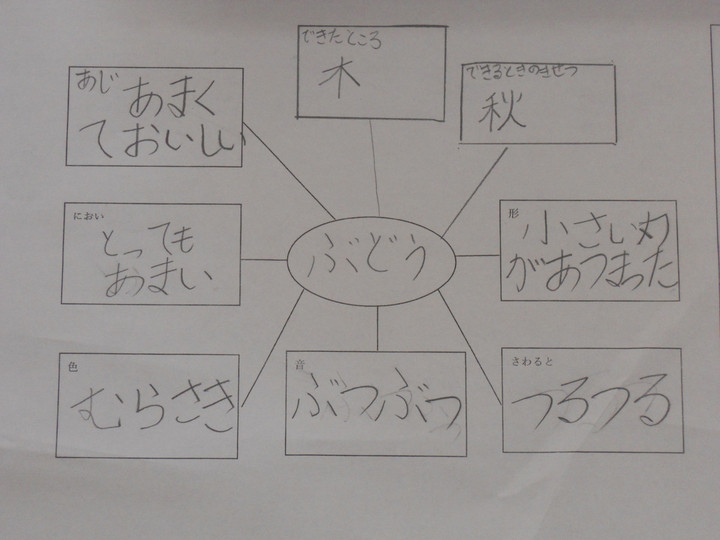 できたところ
木
できるときのきせつ
秋
あじ
あまく
ておいしい
におい
とっても
あまい
ぶどう
形
小さい丸
があつまった
色
むらさき
音
ぶつぶつ
さわると
つるつる